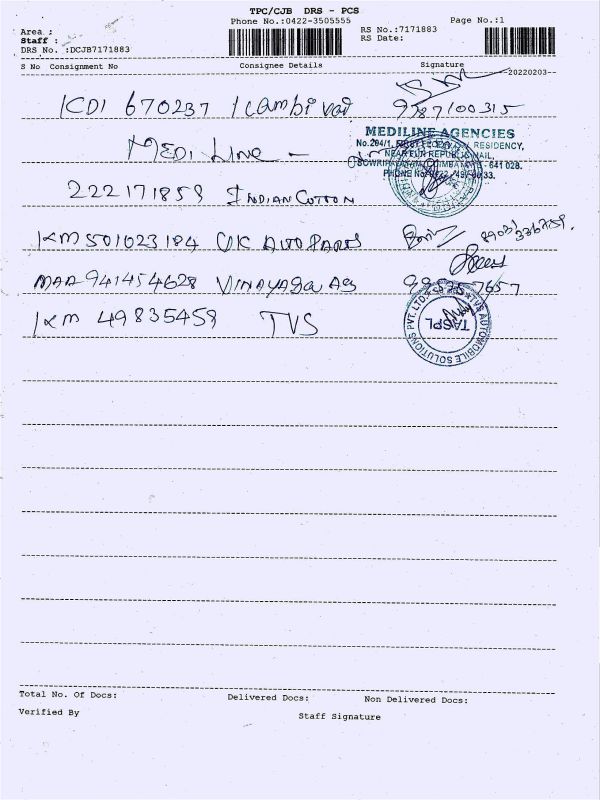 TPC/CJB DRS - PCS
Phone No.:0422-3505555 Page No.:1
Area : RS No.:7171883
Staff : RS Date:
DRS No. :DCJB7171883
S No Consignment No Consignee Details Signature
20220203
KDI 670237 9787100315
MEDI Line
MEDILINE AGENCIES
No.264/1, RESIDENCY,
NEAR FUN REPUBLIC MAIL,
COIMBATORE - 641 028.
PHONE No
222171859 INDIAN COTTON
KM 501023184 UK AUTO PARTS
MAA 941454628 VINAYAGA AG
KM 49835459 TVS
TVS AUTOMOBILE SOLUTIONS PVT. LTD.
TASPL
Total No. Of Docs: Delivered Docs: Non Delivered Docs:
Verified By Staff Signature